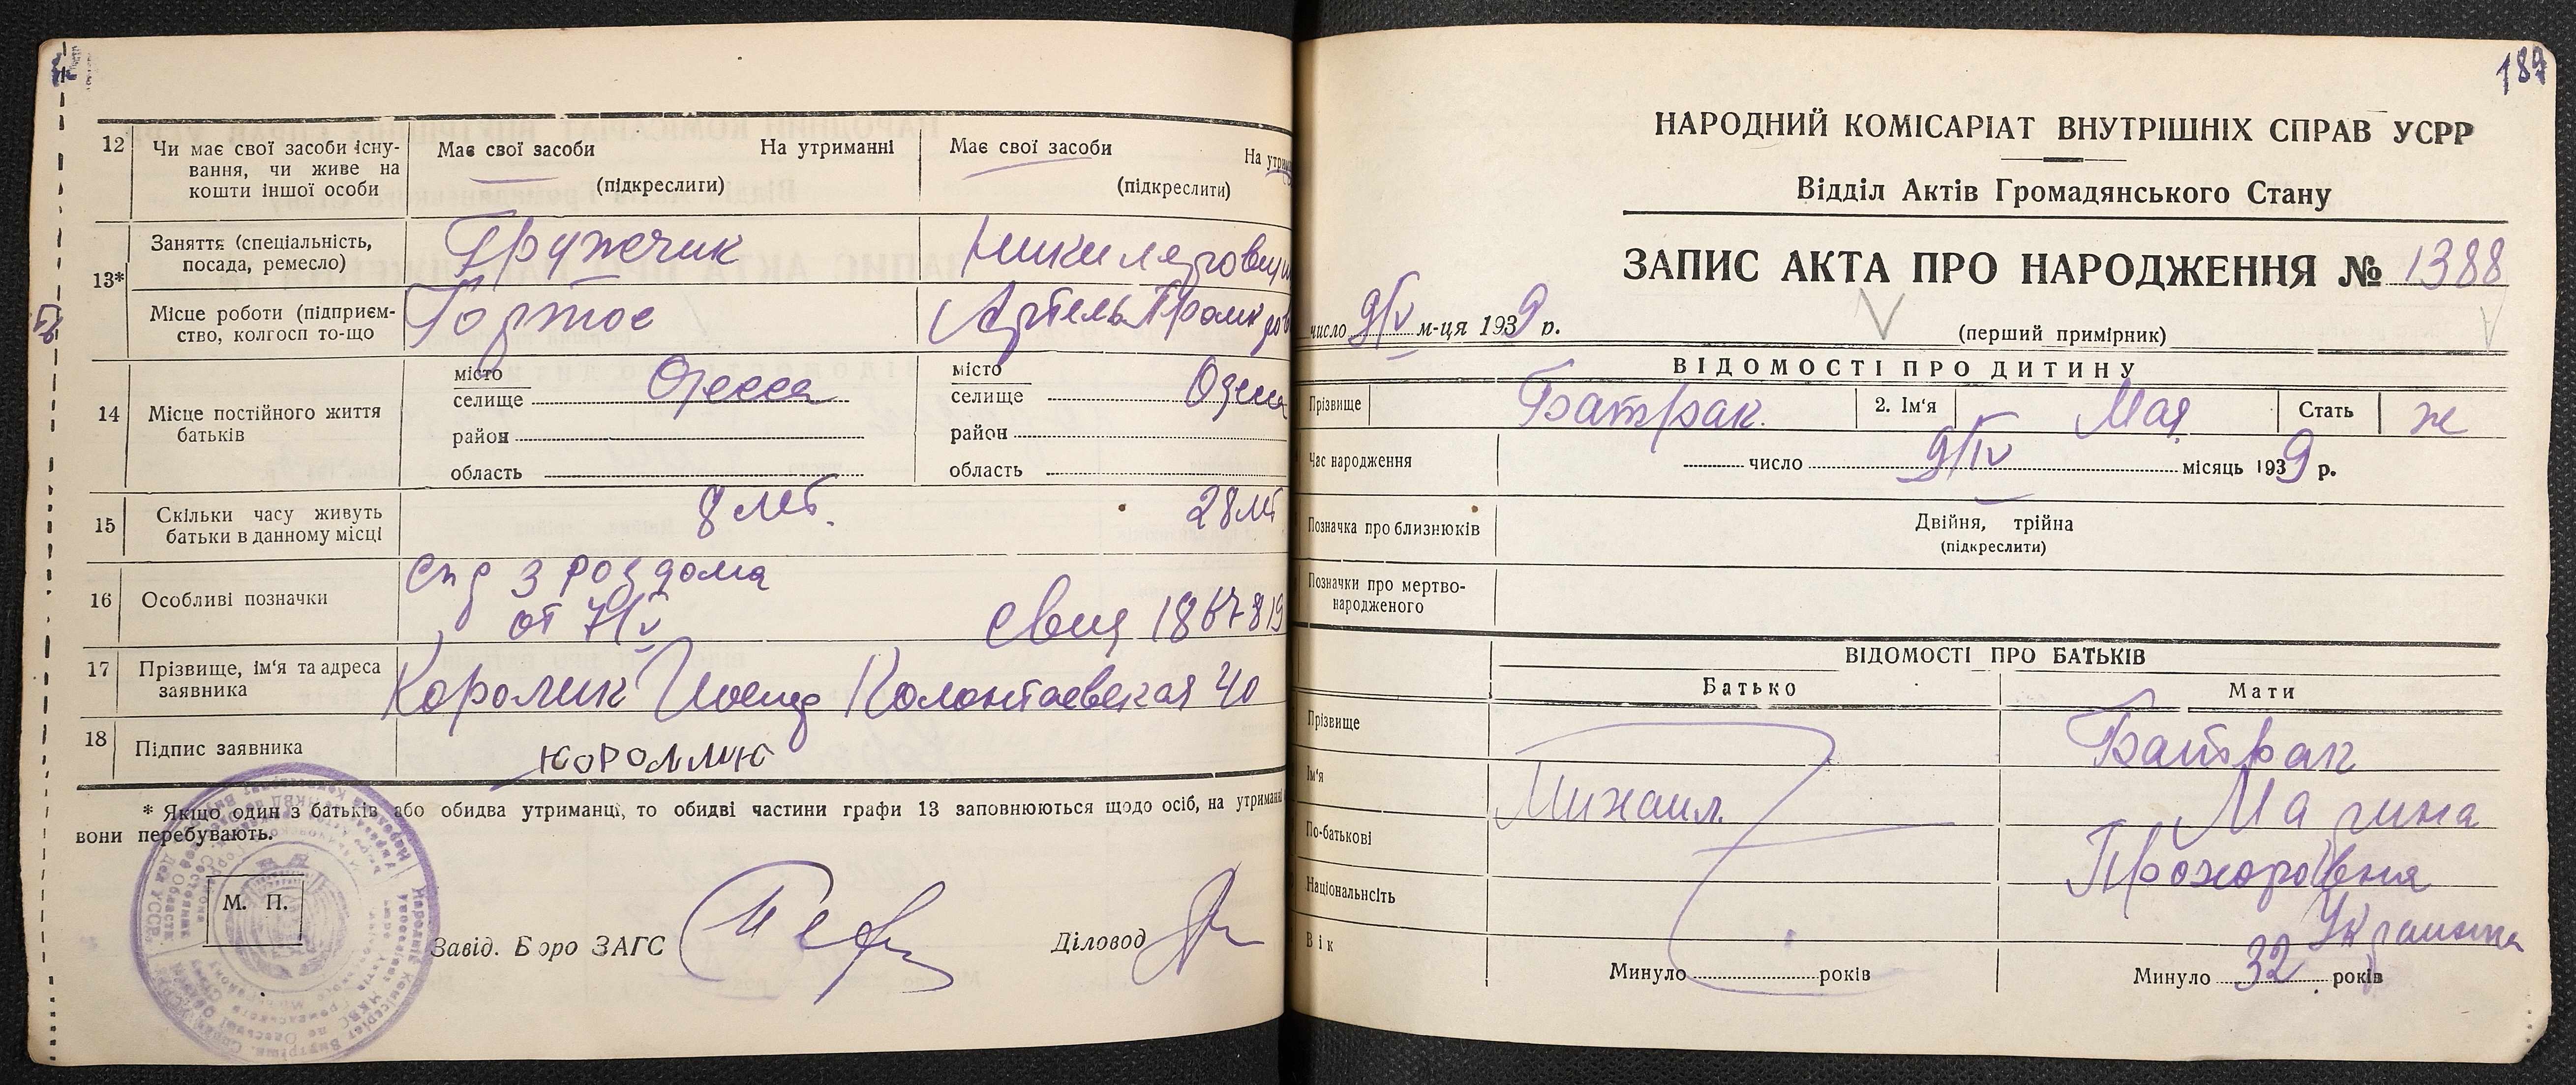 12
Чи має свої засоби існу-
вання, чи живе на
кошти іншої особи
Має свої засоби На утриманні
(підкреслити)
Має свої засоби На утрим
(підкреслити)
13*
Заняття (спеціальність,
посада, ремесло)
Грузчик
Місце роботи (підприєм-
ство, колгосп то-що
Артель
14
Місце постійного життя
батьків
місто
селище Одесса
район
область
місто
селище Одесса
район
область
15
Скільки часу живуть
батьки в данному місці
8 лет.
28 лет
16
Особливі позначки
спр з роддома
от 7/IV
17
Прізвище, ім'я та адреса
заявника
Королик Иосиф Колонтаевская 40
18
Підпис заявника
* Якщо один з батьків або обидва утриманці, то обидві частини графи 13 заповнюються щодо осіб, на утриманні
вони перебувають.
М. П.
Завід. Бюро ЗАГС
Діловод
189
НАРОДНИЙ КОМІСАРІАТ ВНУТРІШНІХ СПРАВ УСРР
Відділ Актів Громадянського Стану
ЗАПИС АКТА ПРО НАРОДЖЕННЯ № 1388
число 9/IV м-ця 1939 р.
(перший примірник)
ВІДОМОСТІ ПРО ДИТИНУ
Прізвище Батрак. 2. Ім'я Мая Стать ж
Час народження число 9/IV місяць 1939 р.
Позначка про близнюків
Двійня, трійна
(підкреслити)
Позначки про мертво-
народженого
ВІДОМОСТІ ПРО БАТЬКІВ
Батько Мати
Прізвище Батрак
Ім'я Михаил.
По-батькові Прохоровна
Національність
Вік
Минуло років Минуло 32 років